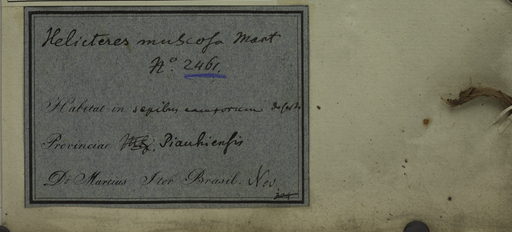 Helicteres muscosa Mart
N.° 2461.
Habitat in sepibus
Provinciae Piauhiensis
Dr Martius Iter Brasil. Nov.